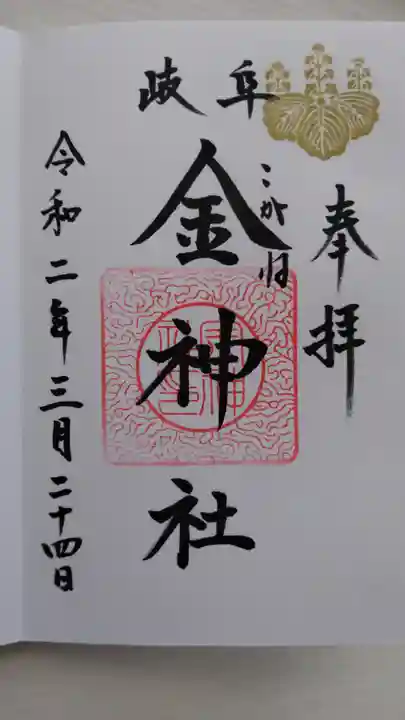 奉拝
岐阜
金神社
こがね
令和二年三月二十四日